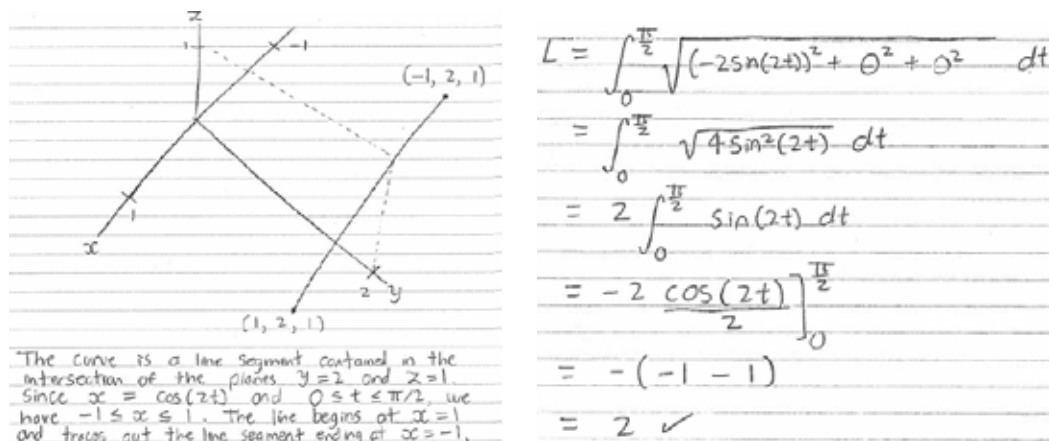 z
1
-1
(-1, 2, 1)
1
x
2
y
(1, 2, 1)
The curve is a line segment contained in the
intersection of the planes y=2 and z=1.
Since x = cos(2t) and 0 ≤ t ≤ π/2, we
have -1 ≤ x ≤ 1. The line begins at x=1
and traces out the line segment ending at x=-1.
L = ∫₀^{π/2} √((-2sin(2t))² + 0² + 0²) dt
= ∫₀^{π/2} √(4sin²(2t)) dt
= 2 ∫₀^{π/2} sin(2t) dt
= -2 cos(2t)/2 ]₀^{π/2}
= -(-1 - 1)
= 2 ✓